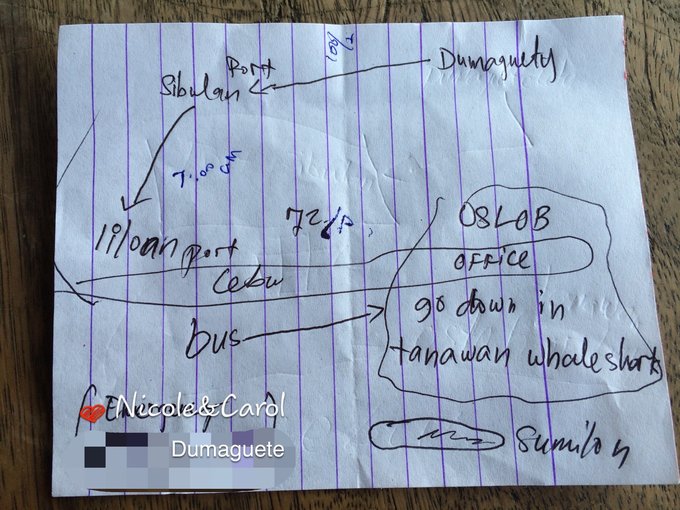 100/
Port
Dumaguety
Sibulan
7:00 am
72/P.
OSLOB
liloan port
OFFICE
Cebu
go down in
bus
tanawan whalesharks
❤Nicole&Carol
Dumaguete
Sumilon